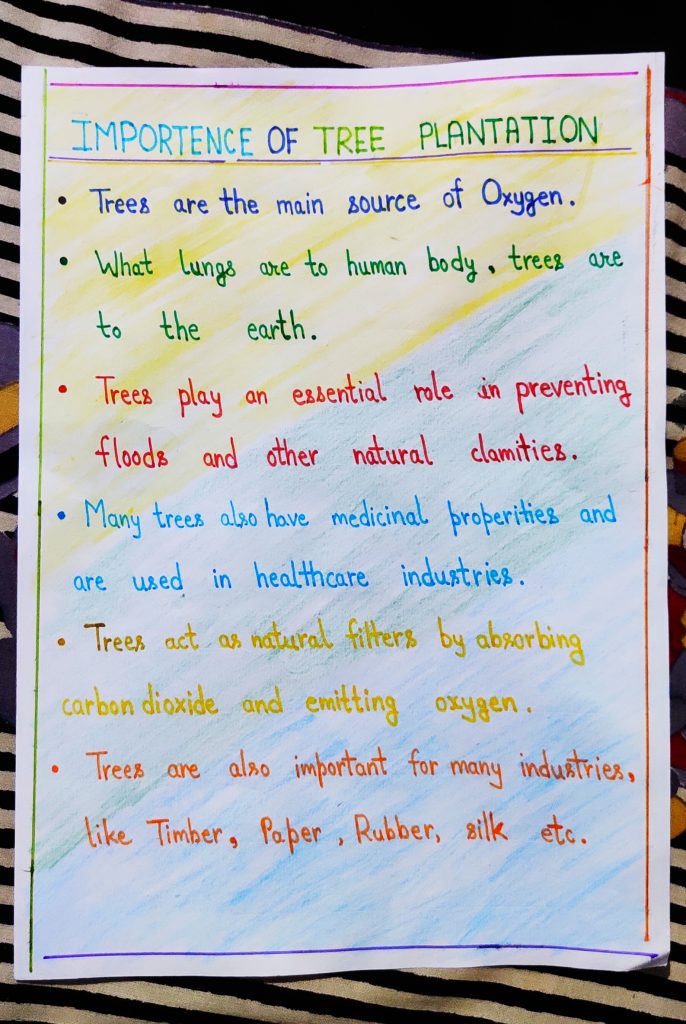 IMPORTENCE OF TREE PLANTATION
• Trees are the main source of Oxygen.
• What lungs are to human body, trees are
to the earth.
• Trees play an essential role in preventing
floods and other natural clamities.
• Many trees also have medicinal properities and
are used in healthcare industries.
• Trees act as natural filters by absorbing
carbon dioxide and emitting oxygen.
• Trees are also important for many industries,
like Timber, Paper, Rubber, silk etc.